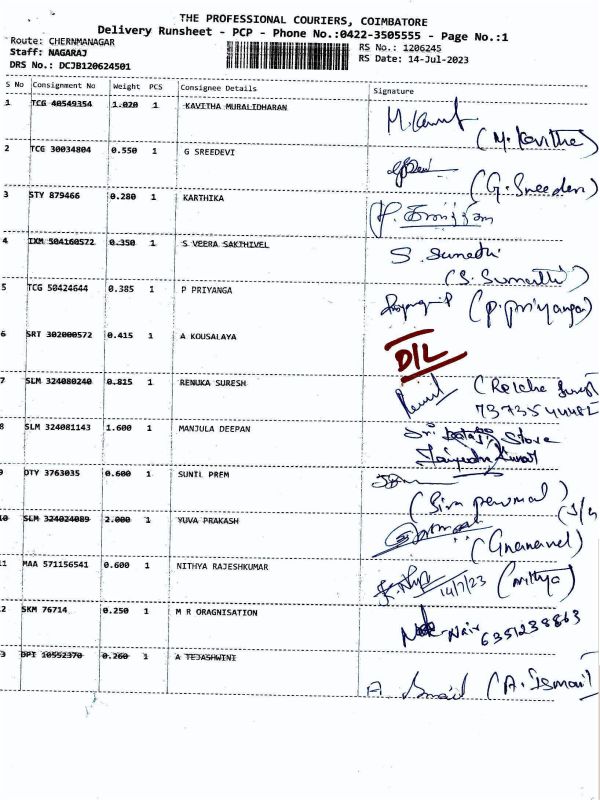 THE PROFESSIONAL COURIERS, COIMBATORE
Delivery Runsheet - PCP - Phone No.:0422-3505555 - Page No.:1
Route: CHERNMANAGAR
RS No.: 1206245
Staff: NAGARAJ
RS Date: 14-Jul-2023
DRS No.: DCJB120624501
S No Consignment No Weight PCS Consignee Details Signature
1 TCG 40549354 1.020 1 KAVITHA MURALIDHARAN
(M. Kavitha)
2 TCG 30034804 0.550 1 G SREEDEVI
(G. Sreedevi)
3 STY 879466 0.280 1 KARTHIKA
4 IXM 504160572 0.350 1 S VEERA SAKTHIVEL
S. Sumathi
(S. Sumathi)
5 TCG 50424644 0.385 1 P PRIYANGA
(P. Priyanga)
6 SRT 302000572 0.415 1 A KOUSALAYA
D/L
7 SLM 324080240 0.815 1 RENUKA SURESH
8 SLM 324081143 1.600 1 MANJULA DEEPAN
Sri Store
9 DTY 3763035 0.600 1 SUNIL PREM
(Siva perumal)
10 SLM 324024089 2.000 1 YUVA PRAKASH
(Gnanavel)
11 MAA 571156541 0.600 1 NITHYA RAJESHKUMAR
14/7/23 (nithya)
12 SKM 76714 0.250 1 M R ORAGNISATION
Nair 6351238863
3 DPT 10552370 0.260 1 A TEJASHWINI
A. Ismail (A. Ismail)